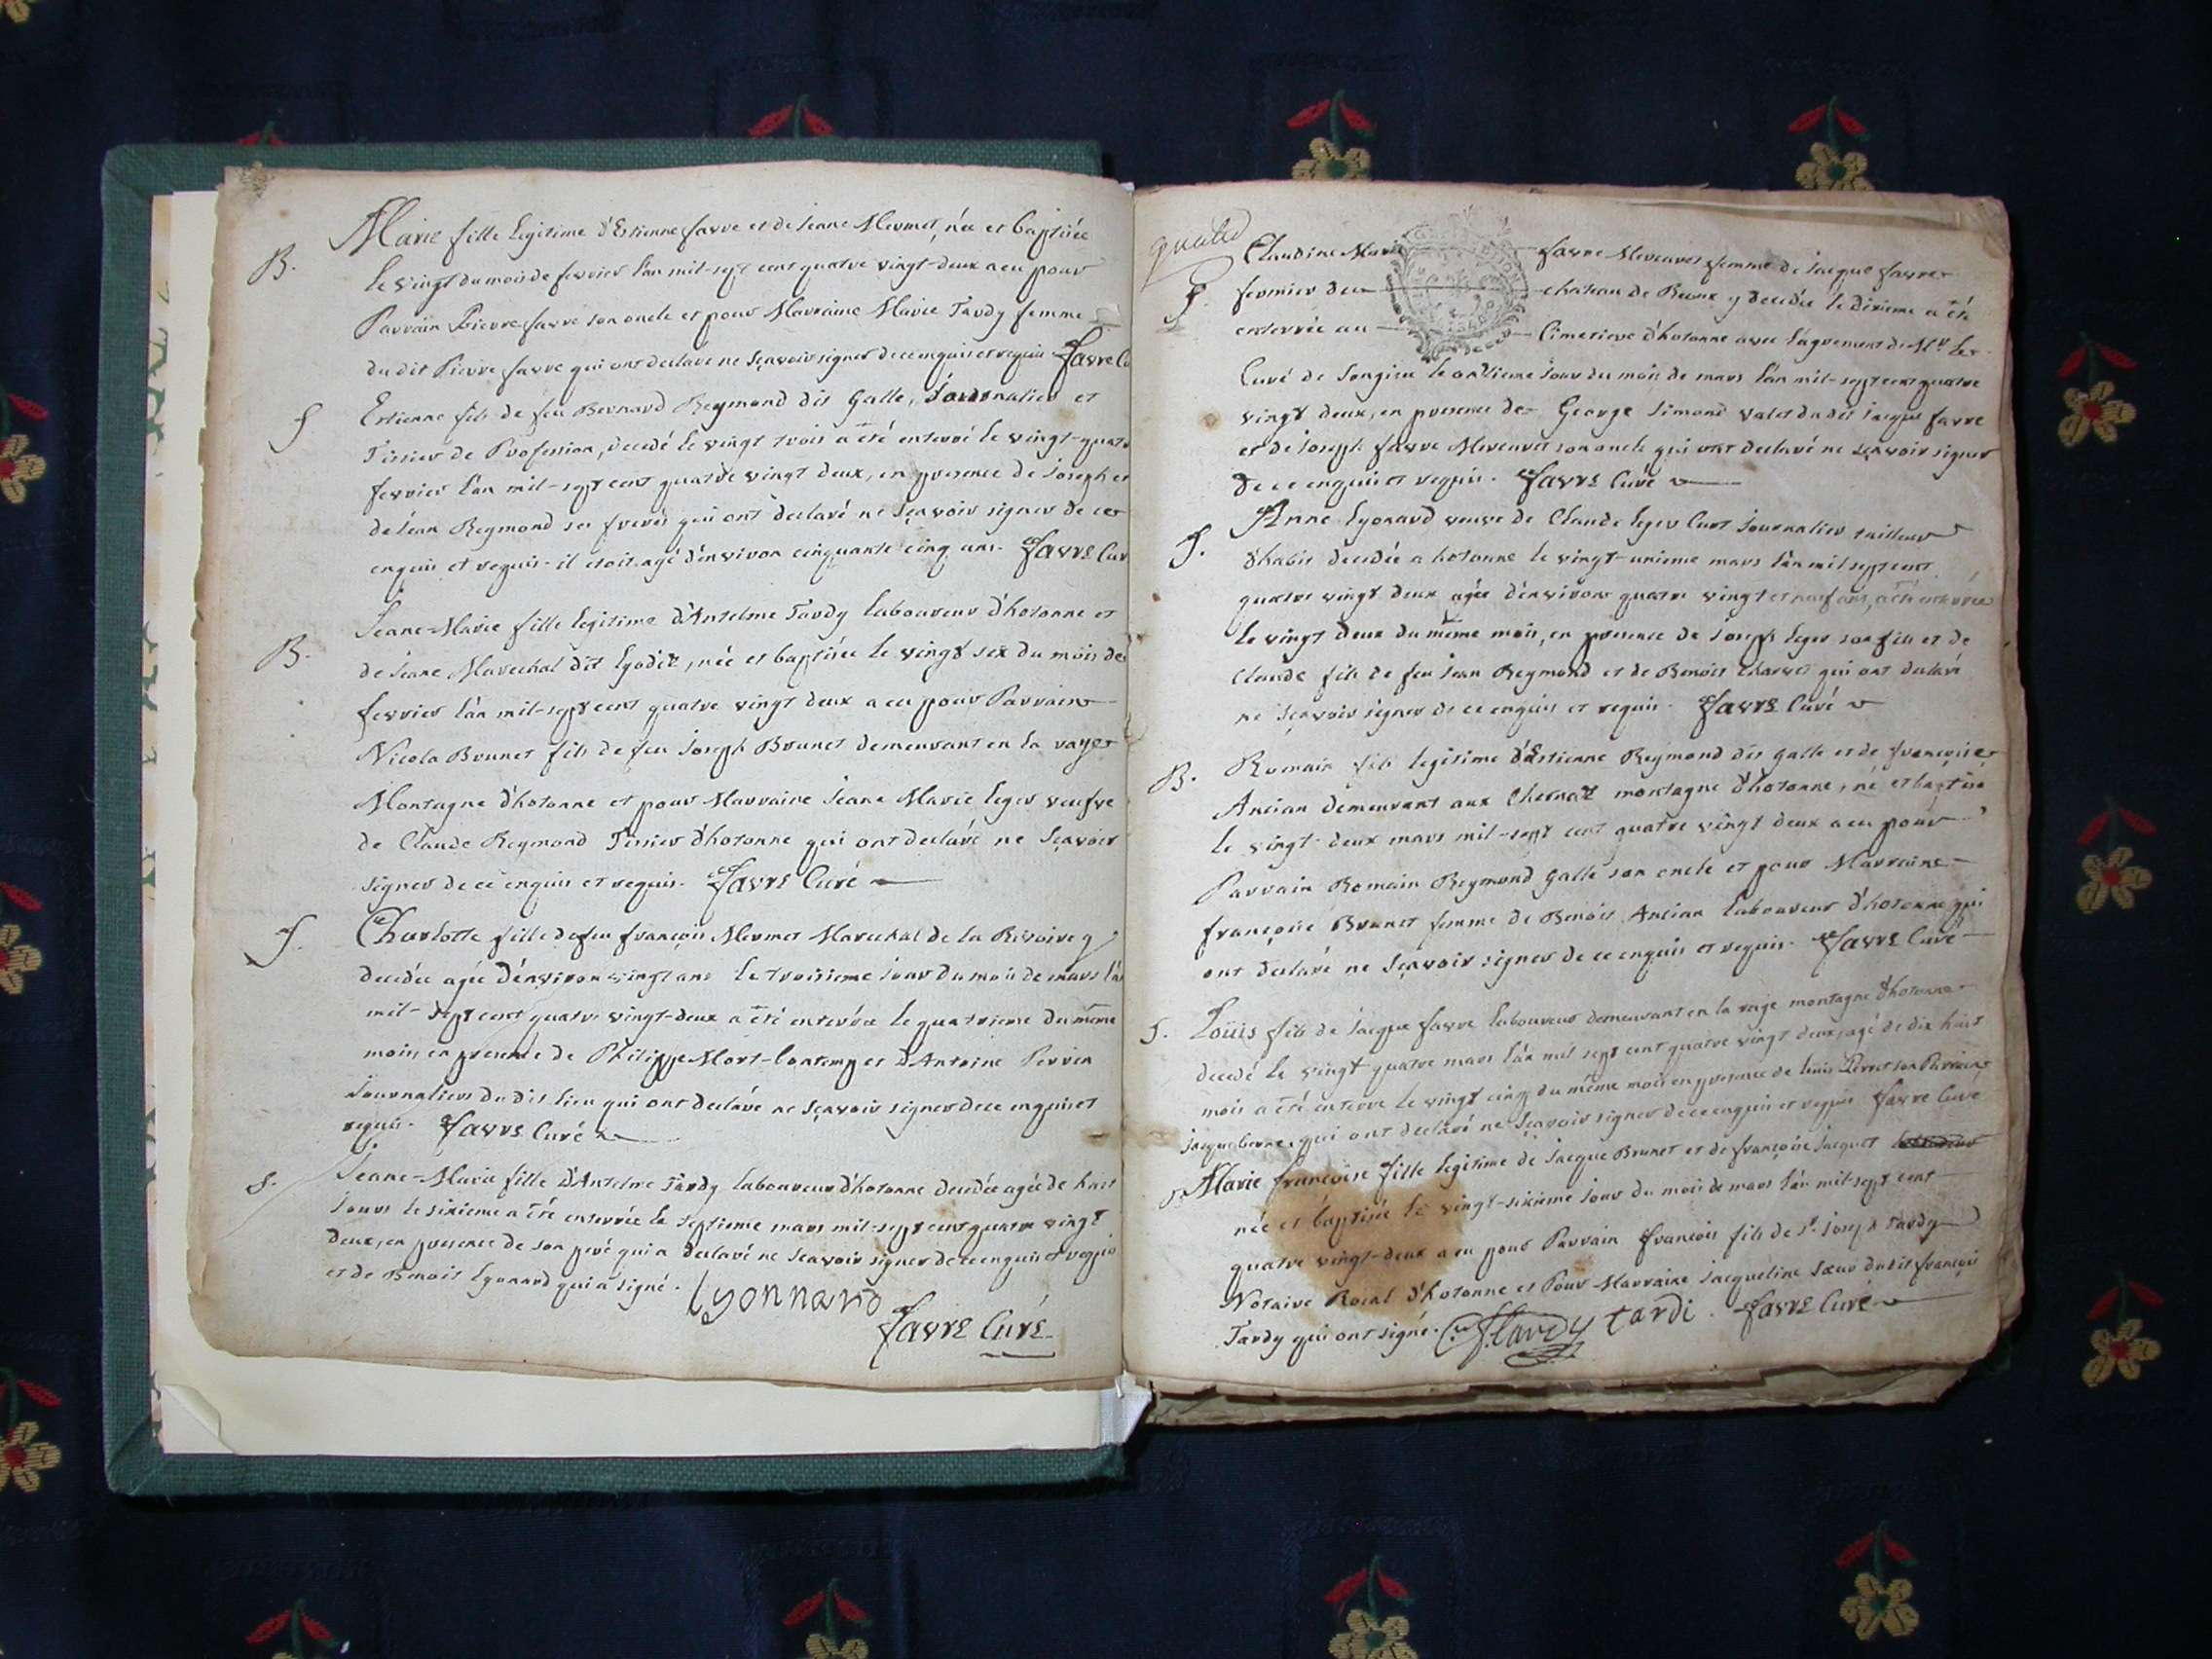 B.
Marie fille Legitime d'Estienne favre et de Jeanne Mermet, née et baptisée
le vingt du mois de fevrier l'an mil-sept cent quatre vingt-deux a eu pour
Parrain Pierre favre son oncle et pour Marraine Marie Tardy femme
du dit Pierre favre qui ont declaré ne sçavoir signer de ce enquis et requis favre Cu
S
Estienne fils de feu Bernard Reymond dit Galle, Journalier et
Tissier de Profession, decedé le vingt trois a été enterré le vingt-quatre
fevrier l'an mil-sept cent quatre vingt deux, en presence de Joseph et
de Jean Reymond ses freres qui ont declaré ne sçavoir signer de ce
enquis et requis. il etoit agé d'environ cinquante cinq ans. favre Cur
B.
Jeane-Marie fille legitime d'Antelme Tardy laboureur d'hotonne et
de Jeane Marechal dit Lyodit, née et baptisée le vingt six du mois de
fevrier l'an mil-sept cent quatre vingt deux a eu pour Parrain
Nicola Brunet fils de feu Joseph Brunet demeurant en la raye
Montagne d'hotonne et pour Marraine Jeane Marie Leger veufve
de Claude Reymond Tissier d'hotonne qui ont declaré ne sçavoir
signer de ce enquis et requis. favre Curé
S.
Charlotte fille de feu françois Mermet Marechal de la Rivoire y
decedée agée d'environ vingt ans le troisieme jour du mois de mars l'an
mil-sept cent quatre vingt-deux a été enterrée le quatrieme du même
mois, en presence de Philippe Mort-Contemp et d'Antoine Perrin
Journaliers du dit lieu qui ont declaré ne sçavoir signer de ce enquis et
requis. favre Curé
S.
Jeane-Marie fille d'Antelme Tardy laboureur d'hotonne decedée agée de huit
jours le sixieme a été enterrée le septieme mars mil-sept cent quatre vingt
deux, en presence de son peré qui a declaré ne sçavoir signer de ce enquis et requis
et de Benoit Lyonard qui a signé. Lyonnard
favre Curé
S.
Claudine Marie favre Mereuret femme de Jacque favre
fermier du chateau de y decedée le dixieme a été
enterrée au Cimetiere d'hotonne avec l'agrement de Mr. Le
Curé de Songieu le onzieme jour du mois de mars l'an mil-sept cent quatre
vingt deux, en presence de George Simond valet du dit Jacque favre
et de Joseph favre Mereuret son oncle qui ont declaré ne sçavoir signer
de ce enquis et requis. favre Curé
S.
Anne Lyonard veuve de Claude Leger Journalier tailleur
d'habit decedée a hotonne le vingt-unieme mars l'an mil sept cent
quatre vingt deux agée d'environ quatre vingt et neuf ans, a été enterrée
le vingt deux du même mois, en presence de Joseph Leger son fils et de
Claude fils de feu Jean Reymond et de Benoit Charvet qui ont declaré
ne sçavoir signer de ce enquis et requis. favre Curé
B.
Romain fils legitime d'Estienne Reymond dit Galle et de françoise
Ancian demeurant aux Chernat montagne d'hotonne, né et baptisé
le vingt-deux mars mil-sept cent quatre vingt deux a eu pour
Parrain Romain Reymond Galle son oncle et pour Marraine
françoise Brunet femme de Benoit Ancian laboureur d'hotonne qui
ont declaré ne sçavoir signer de ce enquis et requis. favre Curé
S.
Loüis fils de Jacque favre laboureur demeurant en la raye montagne d'hotonne
decedé le vingt quatre mars l'an mil sept cent quatre vingt deux, agé de dix huit
mois a été enterré le vingt cinq du même mois en presence de Louis son Parrain
qui ont declaré ne sçavoir signer de ce enquis et requis favre Curé
Marie françoise fille legitime de Jacque Brunet et de françoise Jacquet
née et baptisée le vingt-sixieme jour du mois de mars l'an mil-sept cent
quatre vingt-deux a eu pour Parrain françois fils de Sr. Joseph Tardy
Notaire Roial d'hotonne et Pour Marraine Jacqueline sœur du dit françois
Tardy qui ont signé. tardy tardi. favre Curé